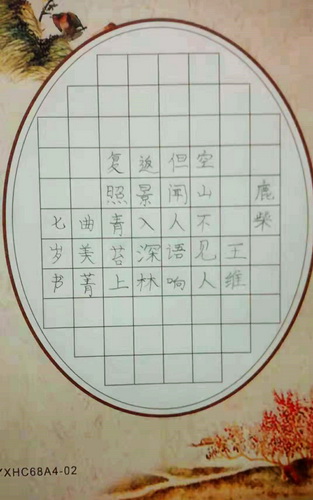 鹿柴
王维
空山不见人
但闻人语响
返景入深林
复照青苔上
曲美菁
七岁书
YXHC68A4-02